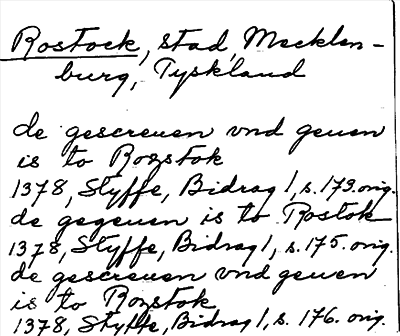 Rostock, stad, Mecklen-
burg, Tyskland
de gescreuen vnd geuen
is to Rozstok
1378, Styffe, Bidrag 1, s. 173. orig.
de gegeuen is to Rostok
1378, Styffe, Bidrag 1, s. 175. orig.
de gescreuen vnd geuen
is to Rozstok
1378, Styffe, Bidrag 1, s. 176. orig.